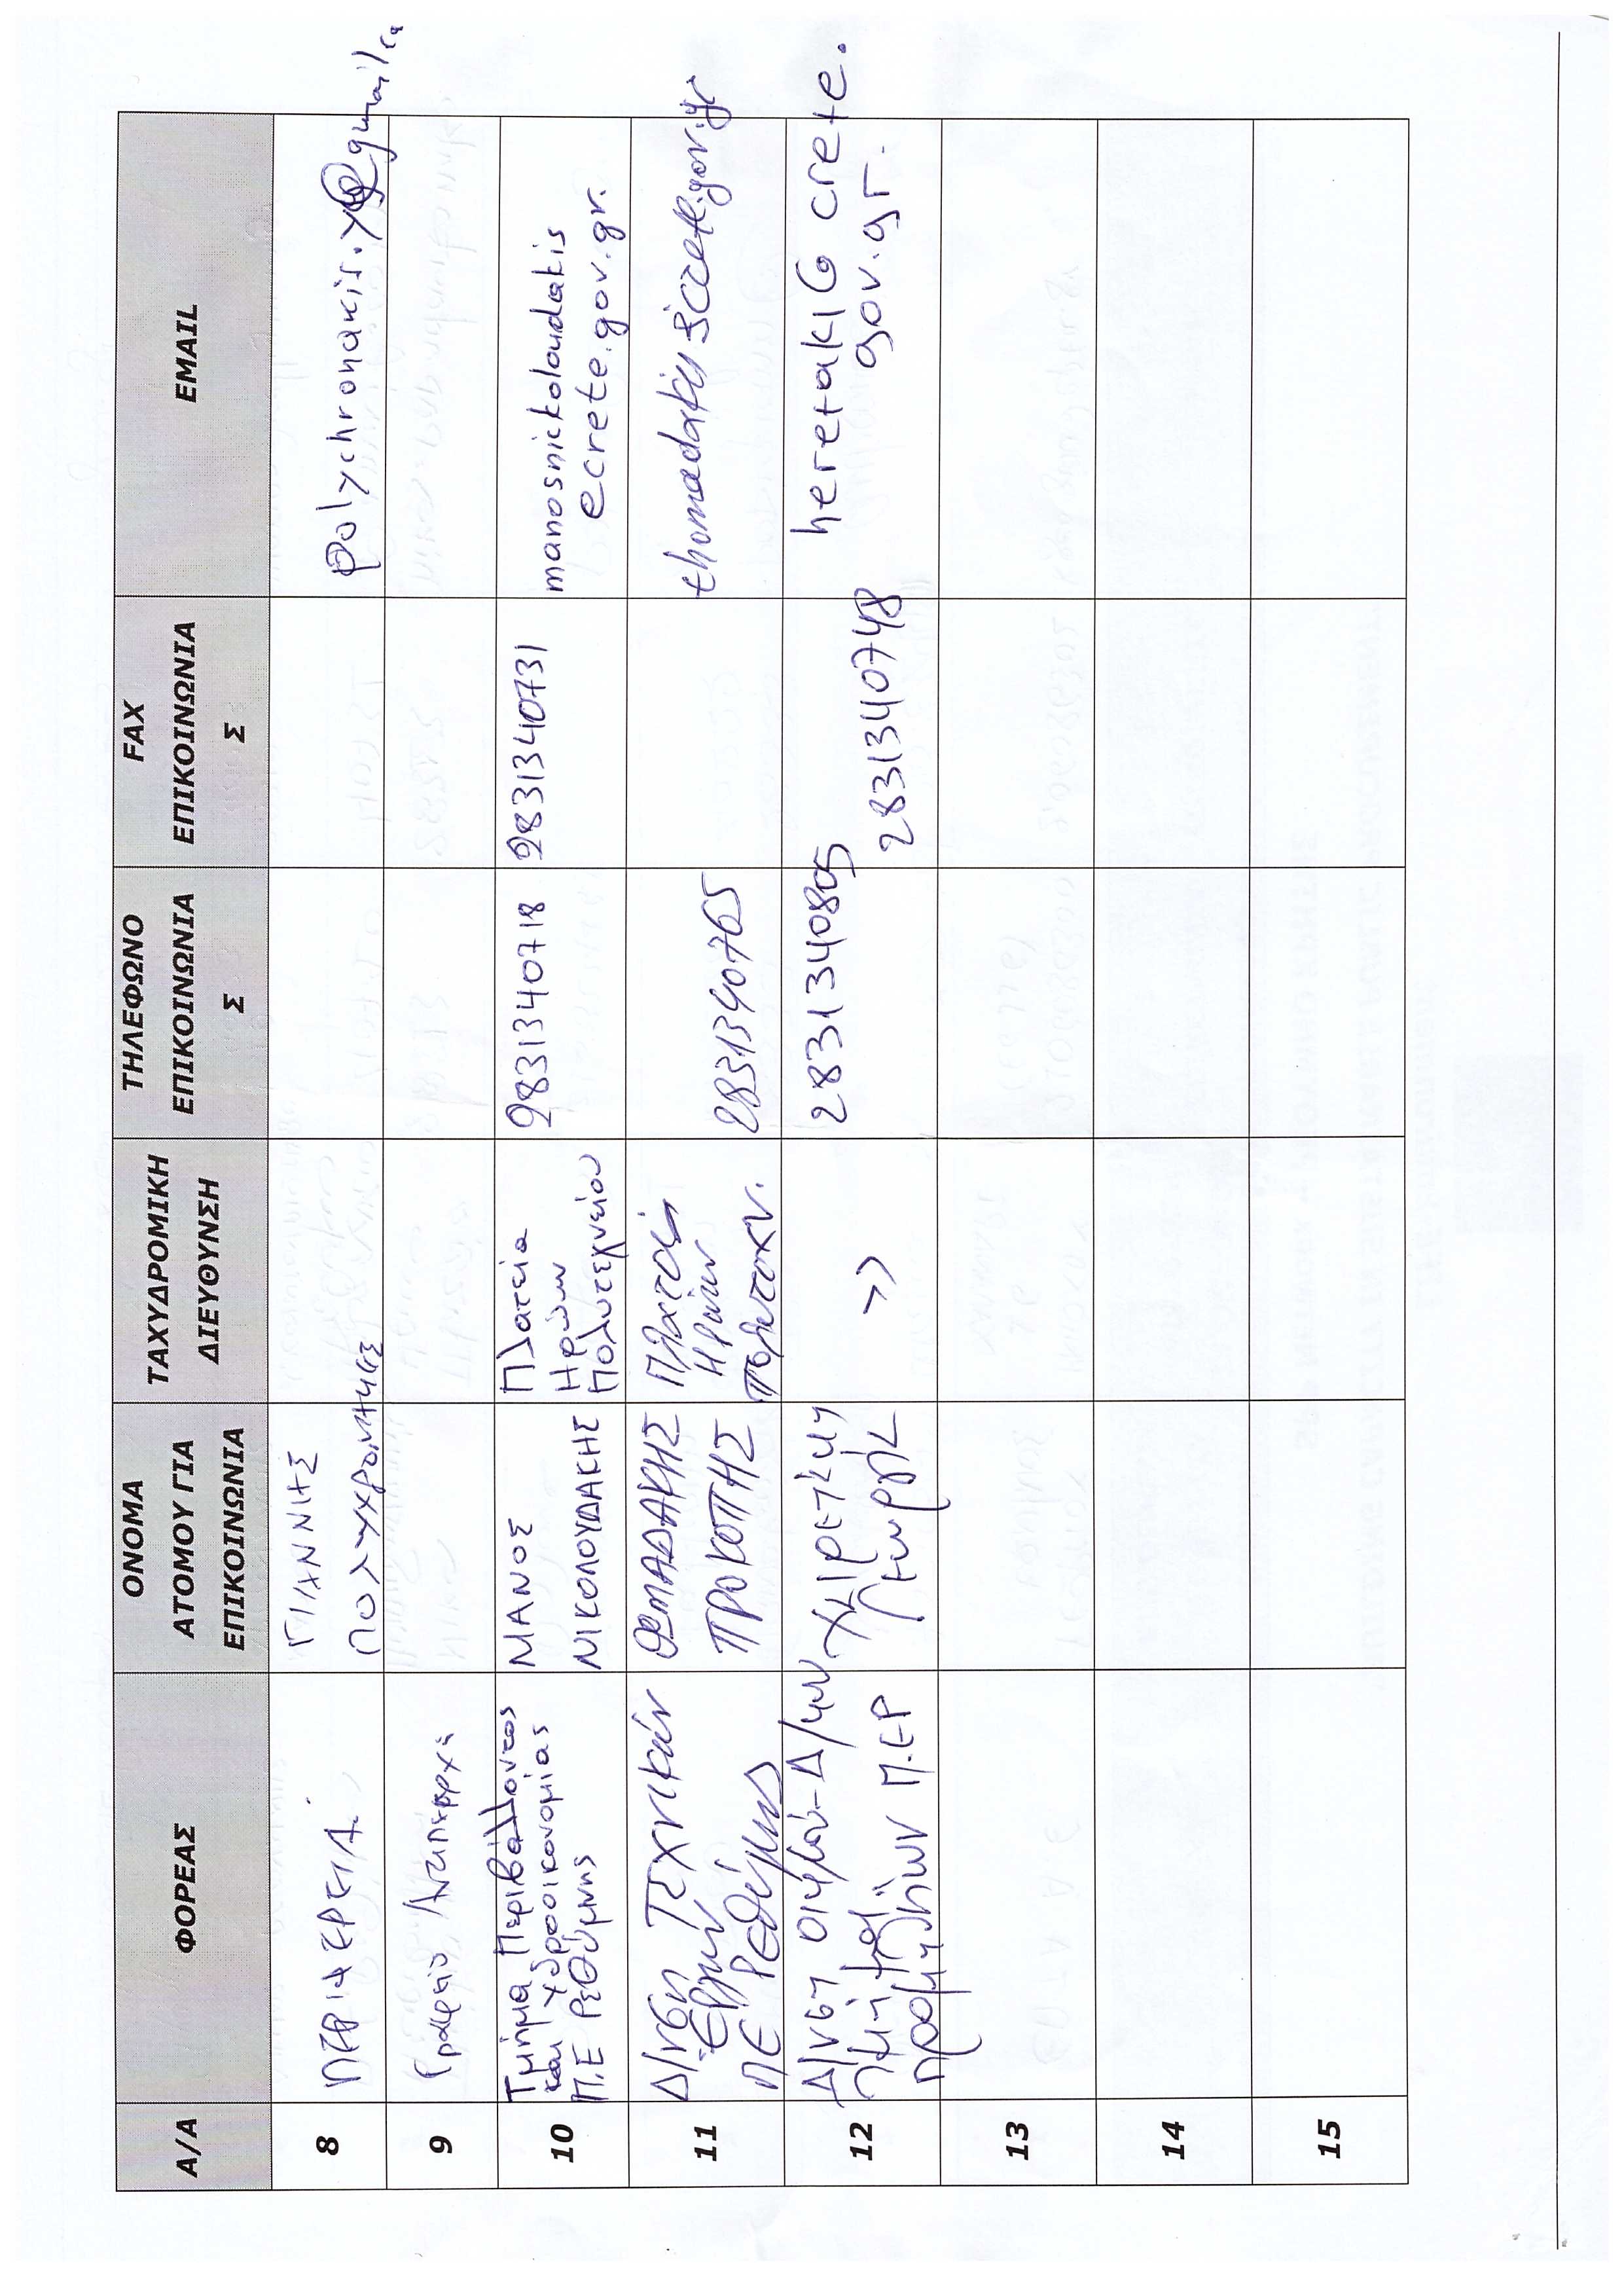 Α/Α
ΦΟΡΕΑΣ
ΟΝΟΜΑ
ΑΤΟΜΟΥ ΓΙΑ
ΕΠΙΚΟΙΝΩΝΙΑ
ΤΑΧΥΔΡΟΜΙΚΗ
ΔΙΕΥΘΥΝΣΗ
ΤΗΛΕΦΩΝΟ
ΕΠΙΚΟΙΝΩΝΙΑ
Σ
FAX
ΕΠΙΚΟΙΝΩΝΙΑ
Σ
EMAIL
8
ΠΕΡΙΦΕΡΕΙΑ
ΓΙΑΝΝΗΣ
polychronakis.y@gmail.co
9
Γραφείο Αντιπεριφ
10
Τμήμα Περιβάλλοντος
και Υδροοικονομίας
Π.Ε Ρεθύμνης
ΜΑΝΟΣ
ΝΙΚΟΛΟΥΔΑΚΗΣ
Πλατεία
Ηρώων
Πολυτεχνείου
2831340718
2831340731
manosnickoloudakis
@crete.gov.gr.
11
Δ/νση Τεχνικών
Έργων
ΠΕ Ρεθύμνης
ΘΩΜΑΔΑΚΗΣ
ΠΡΟΚΟΠΗΣ
Πλατεία
Ηρώων
Πολυτεχν.
2831340765
12
Δ/νση Οικ/κού-Δ/κου
Τμήμα
Προμηθειών Π.Ε.Ρ
ΧΕΡΕΤΑΚΗ
>>
2831340805
2831340748
heretaki@crete.
gov.gr.
13
14
15